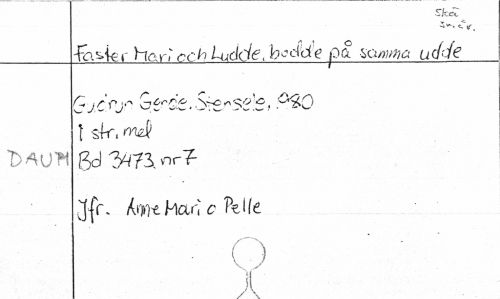 Skä
sv.öv.
Faster Mari och Ludde, bodde på samma udde
Gudrun Gerde, Stensele, 980
1 str, mel
DAUM Bd 3473, nr 7
Jfr. Anne Mari o Pelle